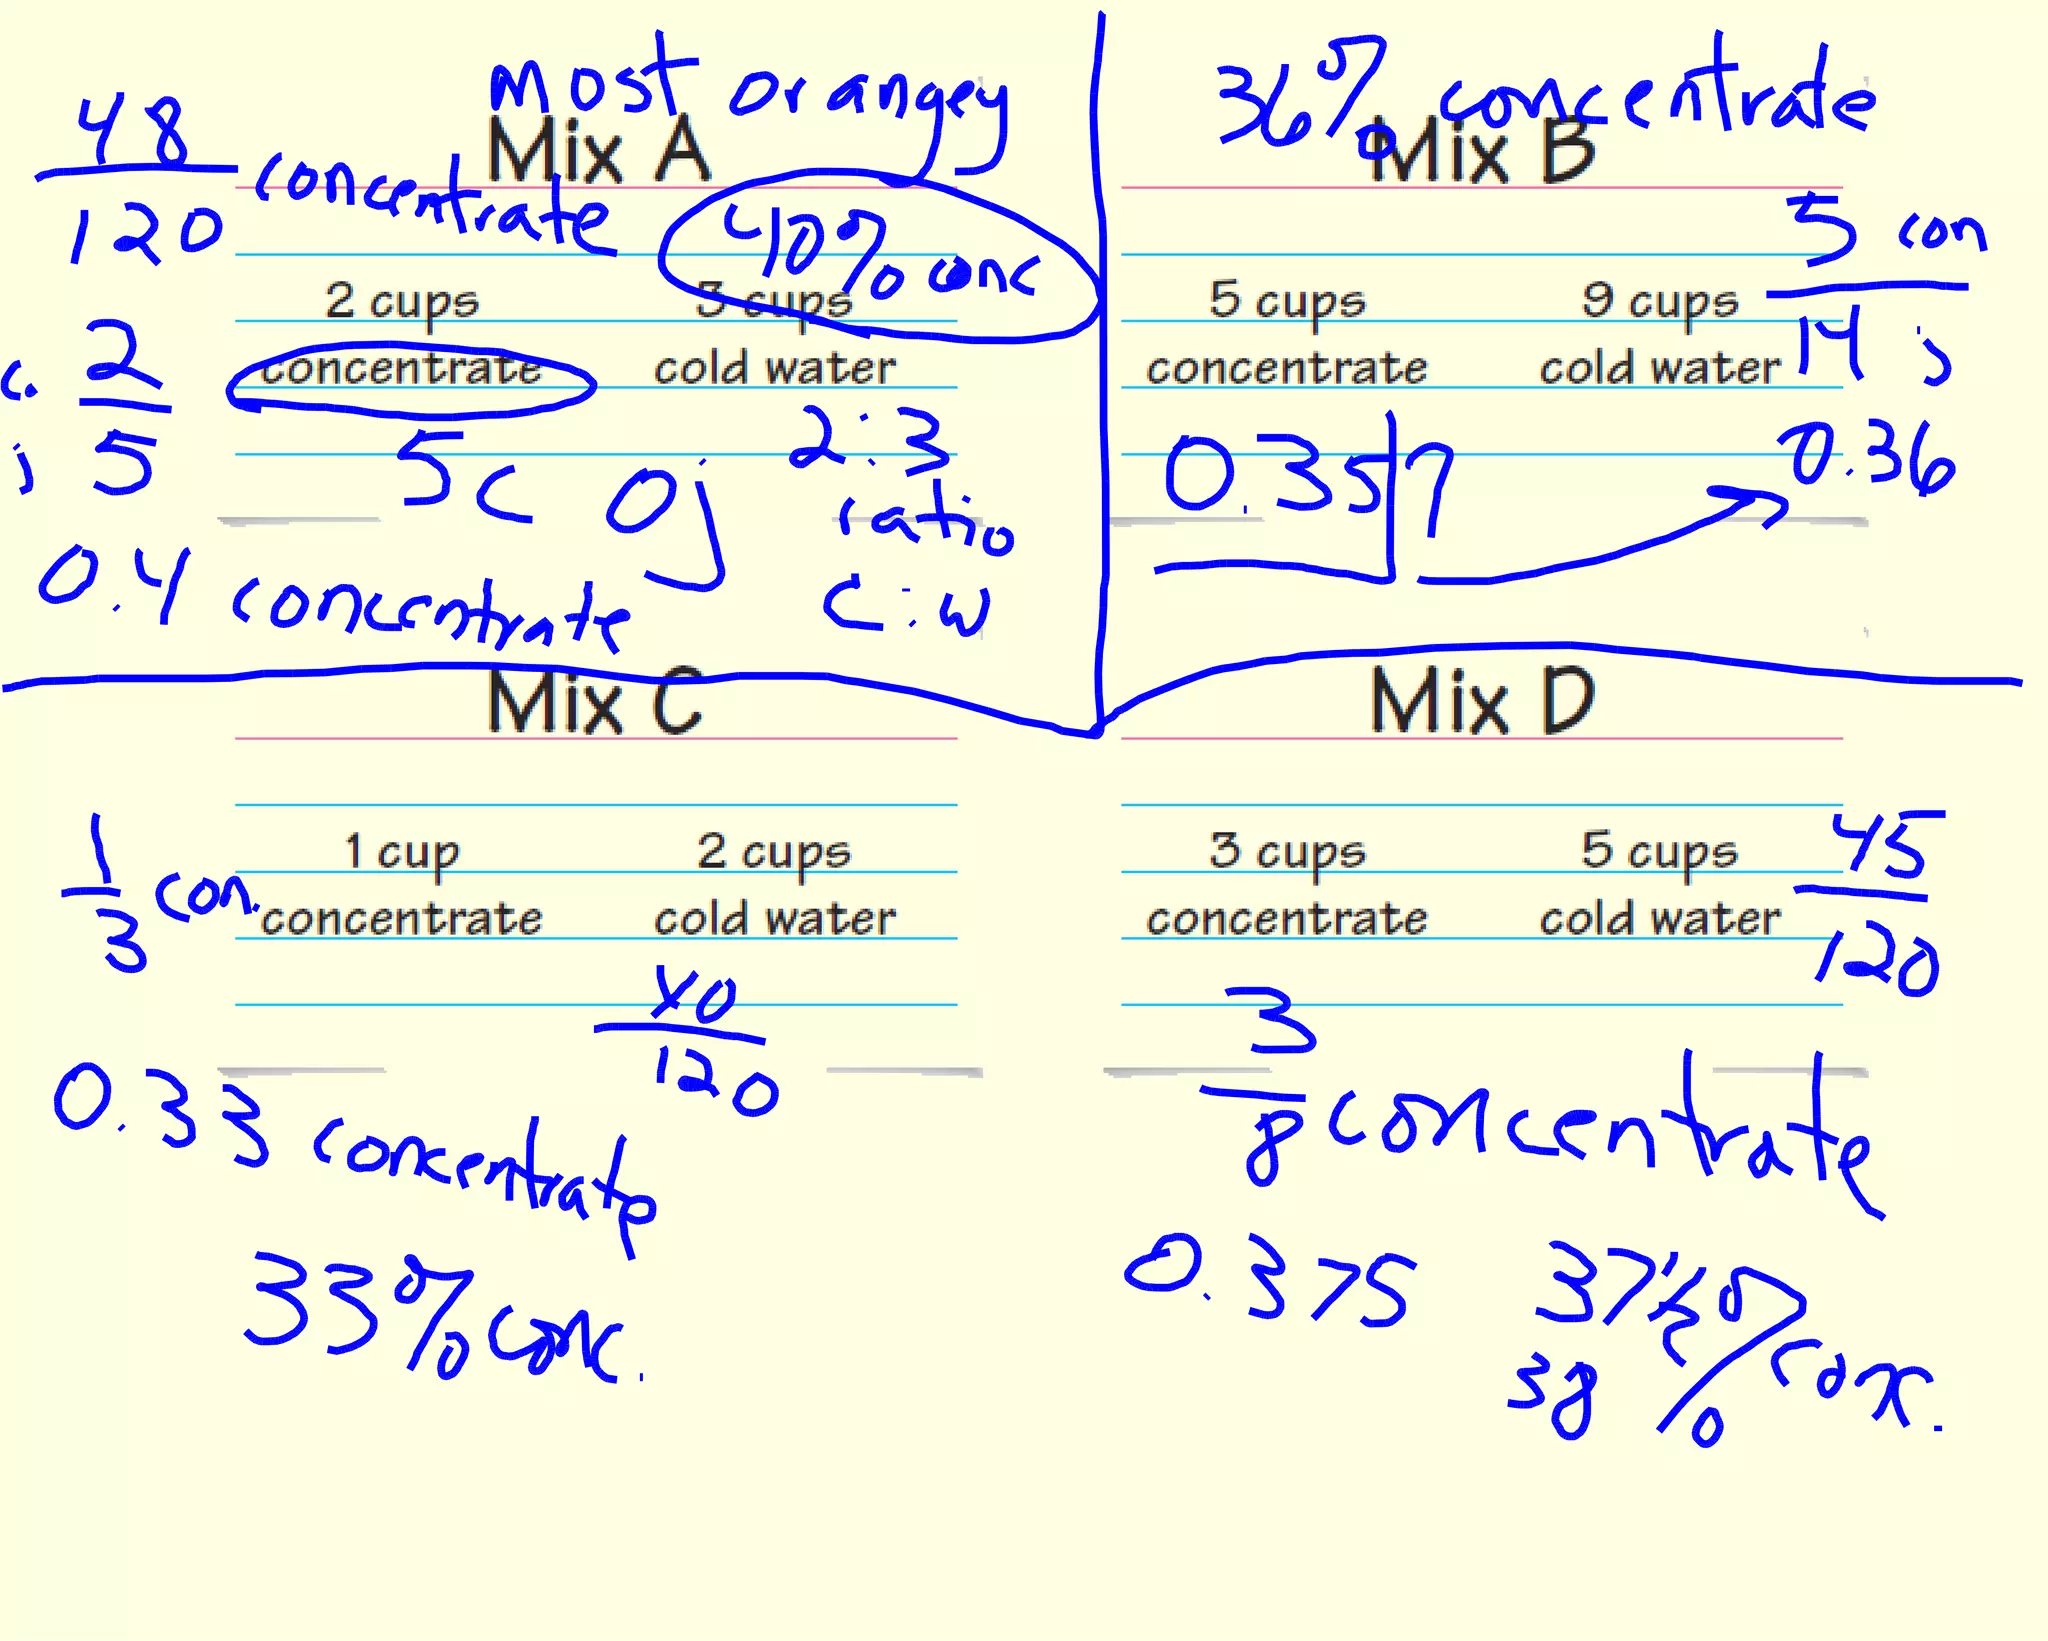 Most orangey
Mix A
48
120
concentrate
40% conc
2 cups
3 cups
concentrate
cold water
c. 2
j 5
5c oj
2:3
ratio
c:w
0.4 concentrate
36% concentrate
Mix B
5 con
14 j
5 cups
9 cups
concentrate
cold water
0.357
0.36
Mix C
1
3
con.
1 cup
2 cups
concentrate
cold water
40
120
0.33 concentrate
33% conc.
Mix D
3 cups
5 cups
concentrate
cold water
45
120
3
8
concentrate
0.375
37½% conc.
38